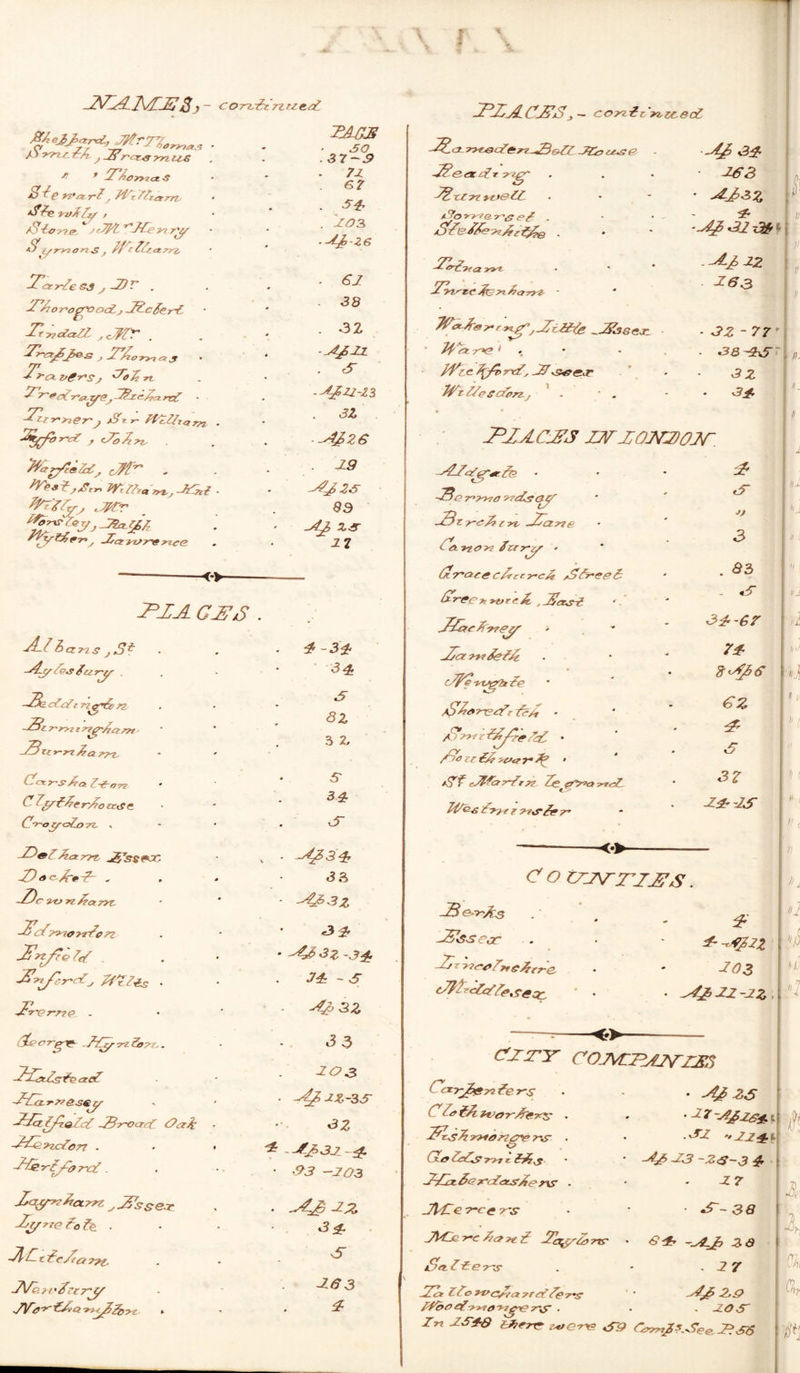 INDEX
NAMES, - continued
PAGE
Sheppard, Mr Thomas . 50
Smith, Erasmus . 37-9
" , Thomas . 71
Stewart, William . 67
Stewkly, . 54
Stone, Mr Henry . 103
Symons, William . Ap 26
Tarless, Dr . 61
Thorogood, Robert . 38
Tindall, Mr . 32
Trappes, Thomas . Ap 11
Travers, John . 5
Tredraye, Richard . Ap 11-13
Turner, Sir William . 32
Tyford, John . Ap 26
Wayfield, Mr . 19
West, Sir William, Knt . Ap 25
Wilty, Mr . 89
Worsley, Ralph . Ap 25
Wyther, Lawrence . 17
PLACES.
Albans, St . 4-34
Aylesbury . 34
Beddington . 5
Birmingham . 82
Burnham . 32
Carshalton . 5
Clytherhouse . 34
Croydon . 5
Delham Essex . Ap 34
Docket . 33
Downham . Ap 32
Edmonton . 34
Enfield . Ap 32-34
Enford, Wilts . 34-5
Frerne . Ap 32
George Hynton . 33
Halstead . 103
Harnesey . Ap 12-35
Hatfield Broad Oak . 32
Hendon . 4-Ap 31-4
Hertford . 93-103
Laynham, Essex . Ap 12
Lynetote . 34
Mitcham . 5
Newbury . 163
Northampton . 4
PLACES, - continued
Ramaden Bell House . Ap 34
Reading . 163
Runwell . Ap 32
Somerset . 4
Stebbenhithe . Ap 31-34
Tolham . Ap 12
Twickenham . 163
Wakering, Little Essex . 32-77
Ware . 38-45
Wickford, Essex . 32
Willesdon, . 34
PLACES IN LONDON.
Aldgate . 4
Bermondsey . 5
Birchin Lane . "
Canon Bury . 3
Gracechurch Street . 83
Greenwich, East . 5
Hackney . 34-67
Lambeth . 74
Newgate . 8 Ap 6
Shoreditch . 62
Smithfield . 4
Southwark . 5
St Martin Le Grand . 37
Westminster . 14-15
COUNTIES.
Berks . 4
Essex . 4-Ap 12
Lincolnshire . 103
Middlesex . Ap 11-12
CITY COMPANIES
Carpenters . Ap 25
Clothworkers . 17-Ap 164
Fishmongers . 51 " 114
Goldsmiths . Ap 13-25-34
Haberdashers . 17
Mercers . 5-38
Merchant Taylors . 64-Ap 28
Salters . 17
Tallowchandlers . Ap 29
Woodmongers . 105
In 1548 there were 59 Comps. See P. 56